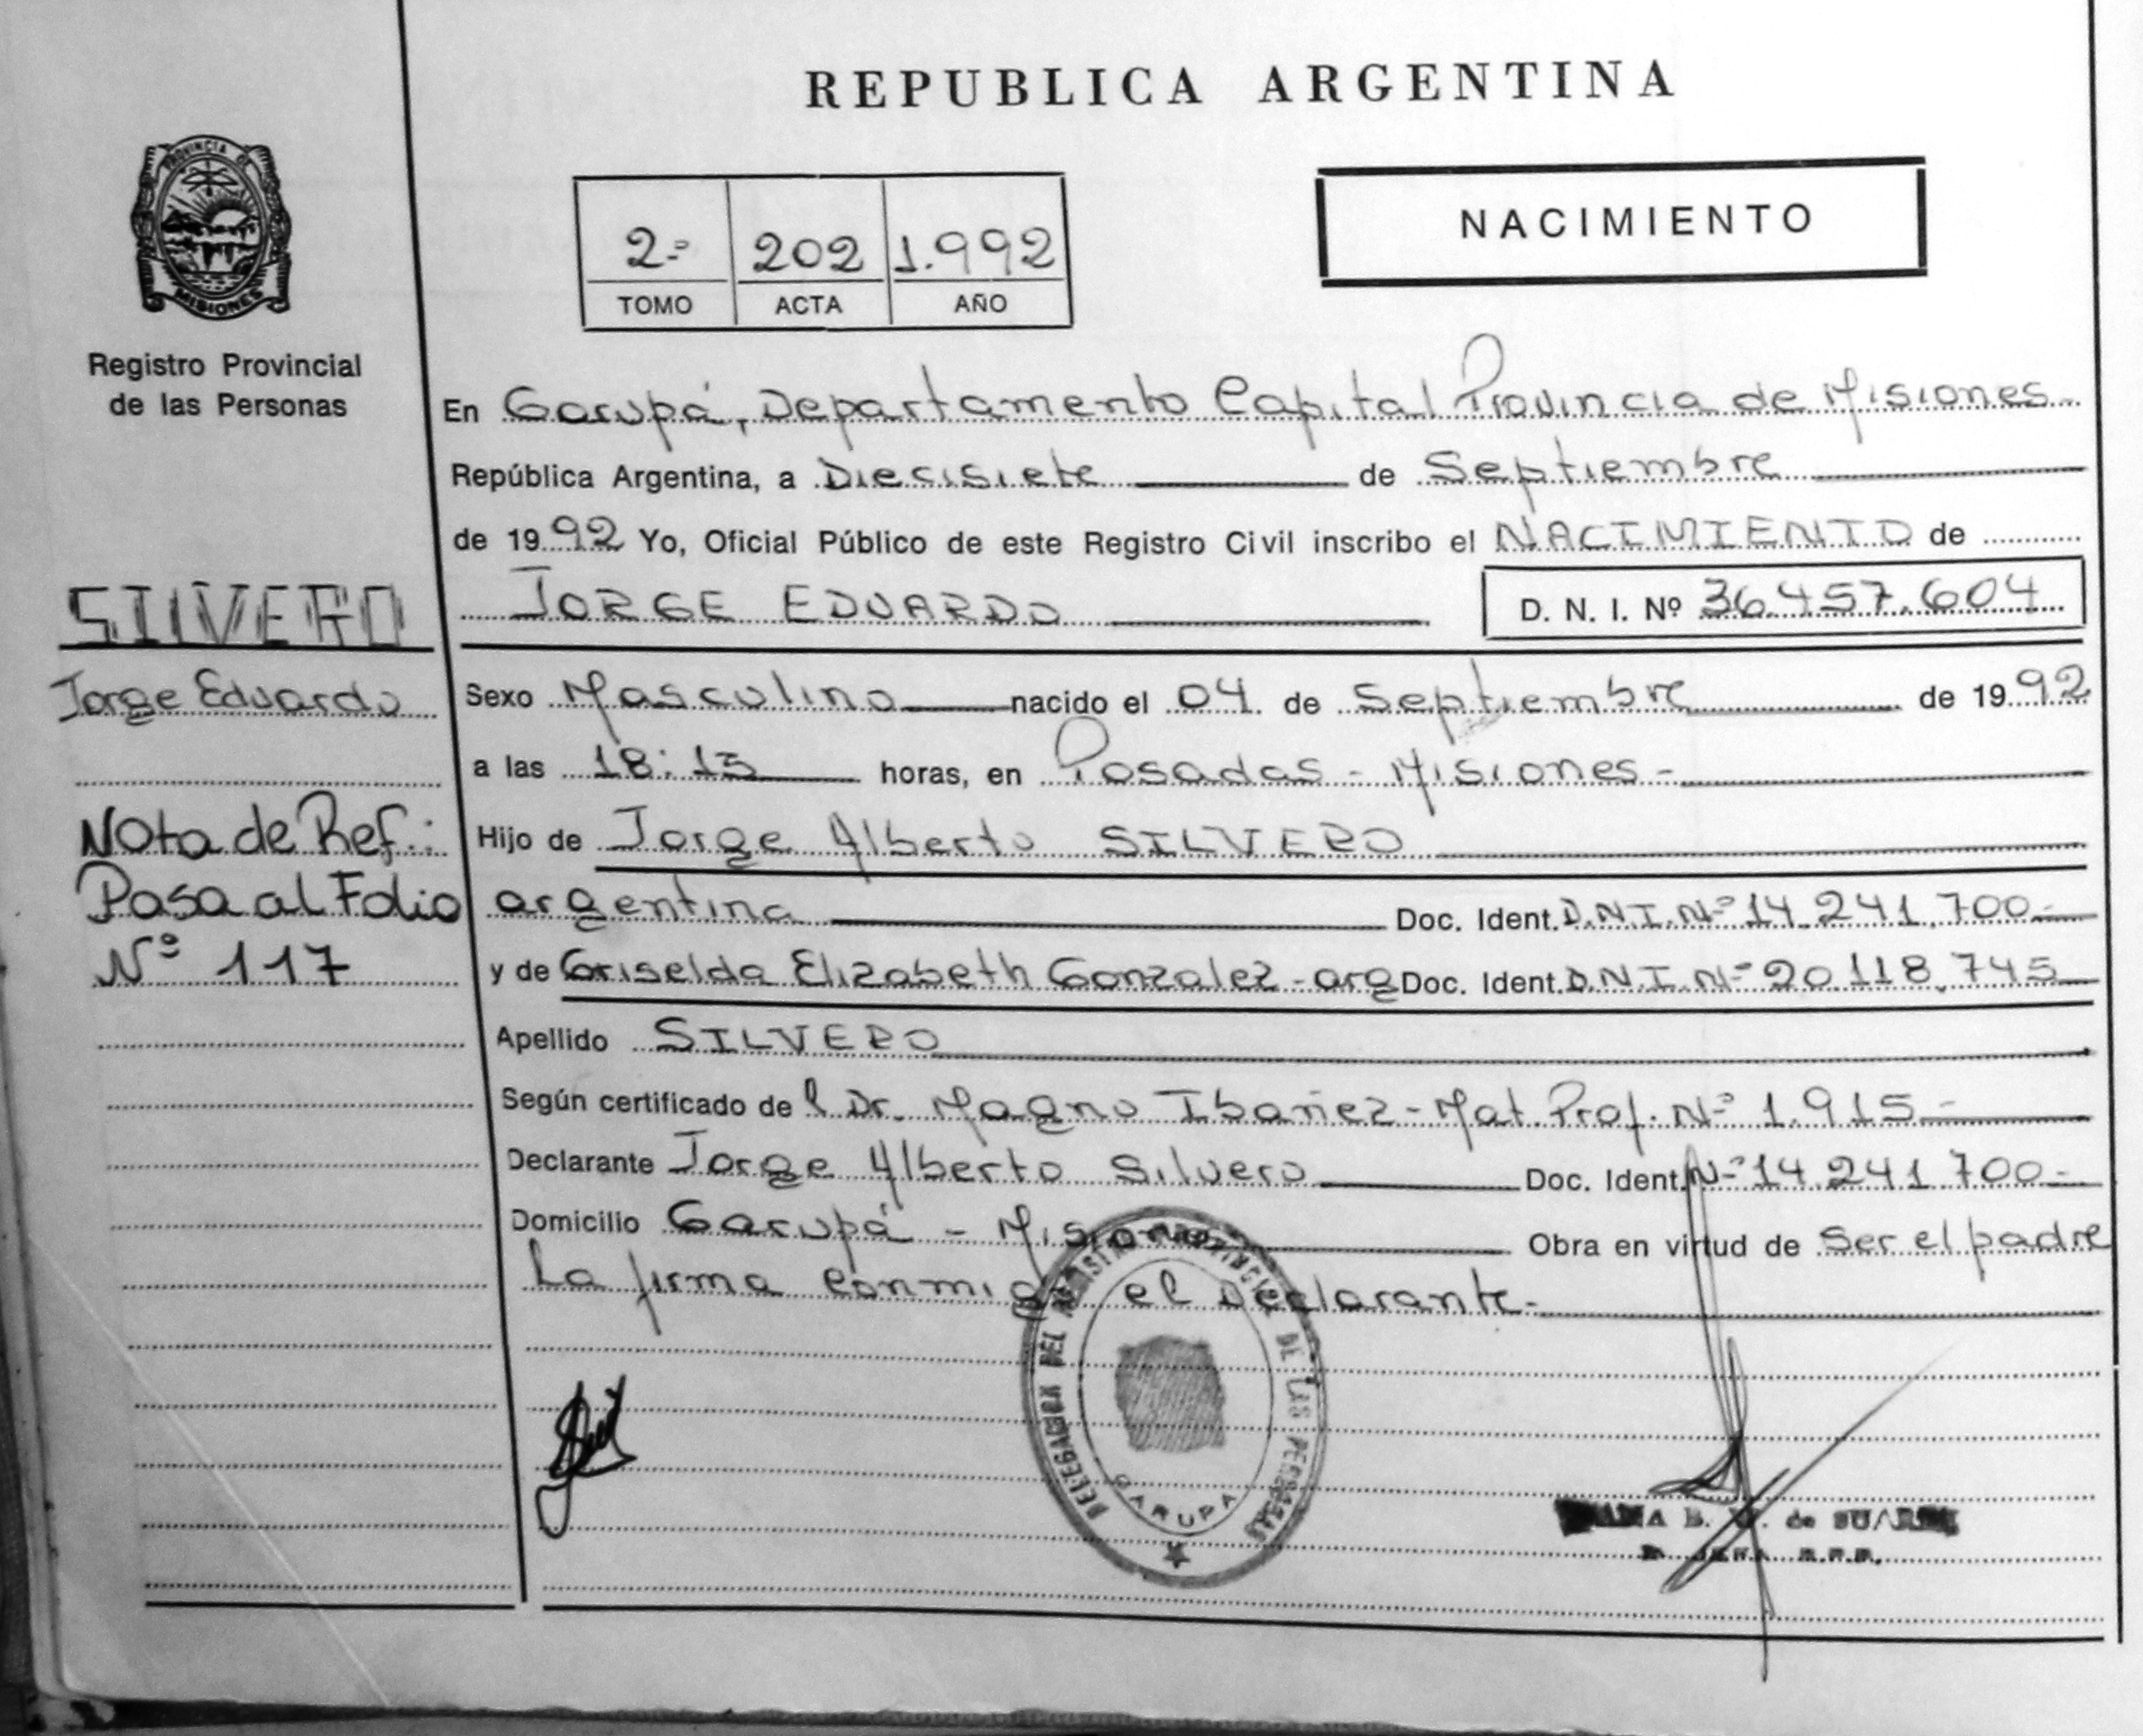 REPUBLICA ARGENTINA
PROVINCIA DE
MISIONES
Registro Provincial
de las Personas
2º 202 1.992
TOMO ACTA AÑO
NACIMIENTO
En Garupá, Departamento Capital Provincia de Misiones
República Argentina, a Diecisiete de Septiembre
de 1992 Yo, Oficial Público de este Registro Civil inscribo el NACIMIENTO de
JORGE EDUARDO D. N. I. Nº 36.457.604
SILVERO
Jorge Eduardo
Nota de Ref.:
Pasa al Folio
Nº 117
Sexo Masculino nacido el 04 de Septiembre de 1992
a las 18:15 horas, en Posadas - Misiones -
Hijo de Jorge Alberto SILVERO
argentina Doc. Ident. D.N.I. Nº 14.241.700-
y de Griselda Elizabeth Gonzalez - arg Doc. Ident. D.N.I. Nº 20.118.745
Apellido SILVERO
Según certificado de l Dr. Magno Ibañez - Mat. Prof. Nº 1.915 -
Declarante Jorge Alberto Silvero Doc. Ident. Nº 14.241.700-
Domicilio Garupá - Misiones Obra en virtud de Ser el padre
La firma conmigo el Declarante.
DELEGACION DEL REGISTRO PROVINCIAL DE LAS PERSONAS
GARUPA
B. de SUAREZ